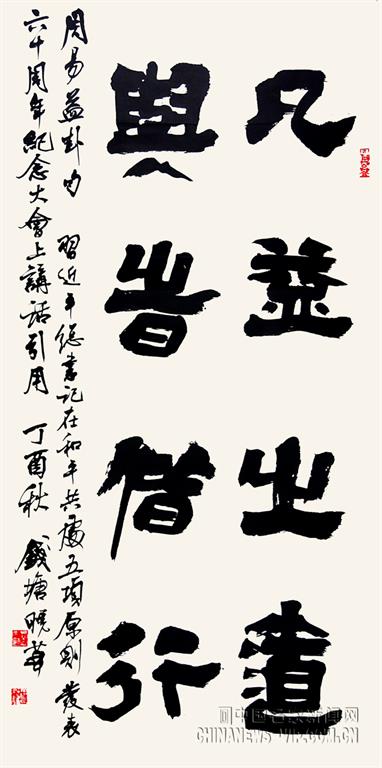 凡益之道
與旹偕行
周易益卦 習近平總書記在和平共處五項原則發表
六十周年紀念大會上講話引用 丁酉秋 錢塘曉
CHINANEWS-VIP.COM.CN